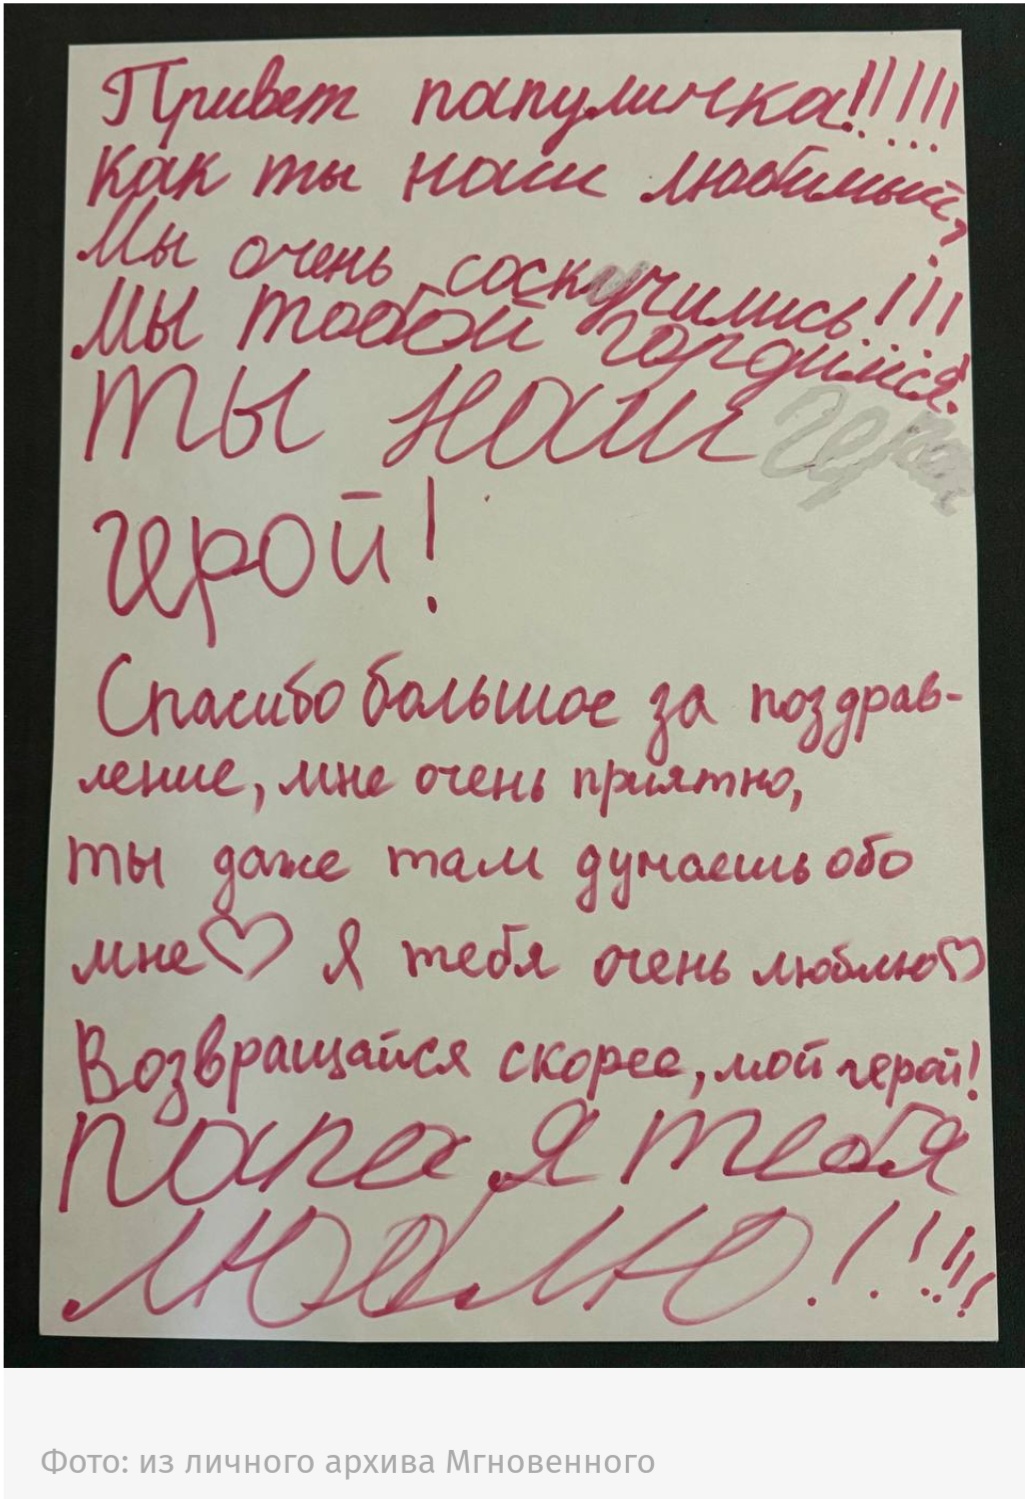 Привет папуличка!!!!!!
Как ты наш любимый?
Мы очень соскучились!!!
Мы тобой гордимся.
Ты наш
герой!
Спасибо большое за поздрав-
ление, мне очень приятно,
ты даже там думаешь обо
мне♡ Я тебя очень люблю♡
Возвращайся скорее, мой герой!
Папа я тебя
люблю!!!!!
Фото: из личного архива Мгновенного